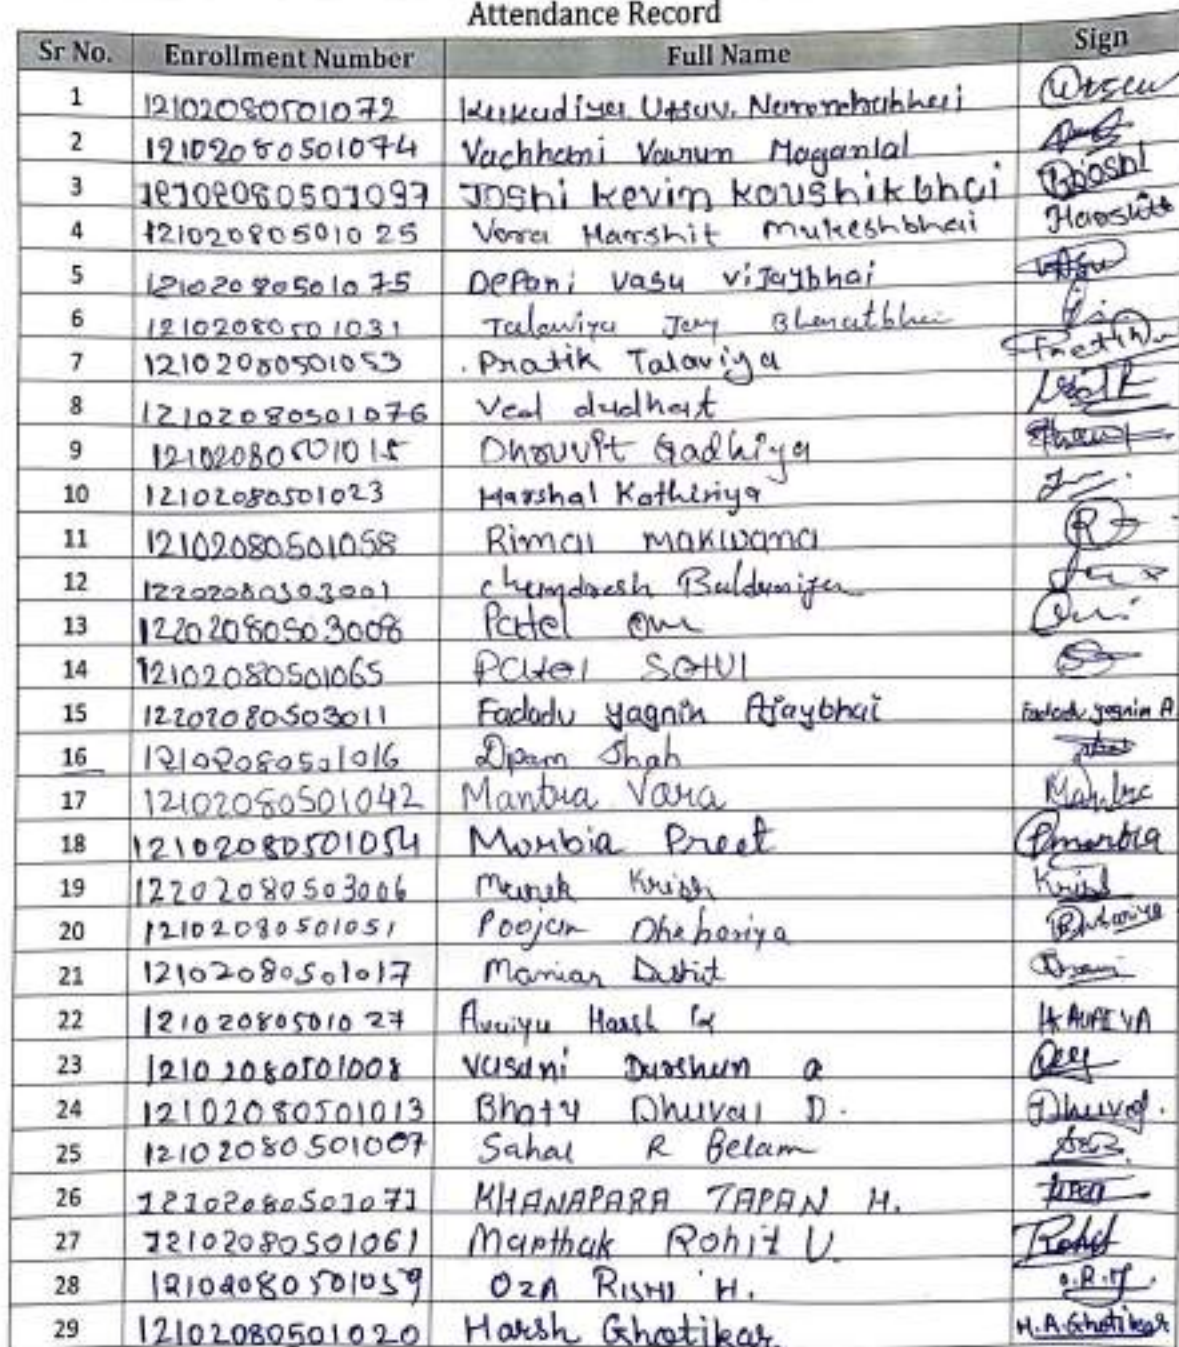 Attendance Record
Sr No. Enrollment Number Full Name Sign
1 12102080501072 Kukadiya Utsav. Narendrabhai
2 12102080501074 Vachhani Varun Maganlal
3 12102080501097 Joshi Kevin Kaushikbhai
4 12102080501025 Vora Harshit Mukeshbhai Harshit
5 12102080501075 Depani vasu vijaybhai
6 12102080501031 Talaviya Jay Bharatbhai
7 12102080501053 Pratik Talaviya
8 12102080501076 Ved dudhat
9 12102080501015 Dhruvit Gadhiya
10 12102080501023 Harshal Kathiriya
11 12102080501058 Rimal makwana
12 12202080503001 Baldaniya
13 12202080503008 Patel om
14 12102080501065 Patel
15 12202080503011 Fadadu yagnin Ajaybhai Fadadu yagnin A
16 12102080501016 Shah
17 12102080501042 Mantra Vara Mantra
18 12102080501054 Morbia Preet Pmorbia
19 12202080503006 Manek Krish Krish
20 12102080501051 Poojan Dhebariya
21 12102080501017 Maniar
22 12102080501027 Avaiya Harsh
23 12102080501008 Vasani Darshan
24 12102080501013 Bhatt Dhuval D. Dhuval.
25 12102080501007 Sahal R Belam
26 12102080501071 KHANAPARA TAPAN H.
27 12102080501061 Manthak Rohit U. Rohit
28 12102080501059 OZA RISHI H.
29 12102080501020 Harsh Ghotikar. H.A.Ghotikar